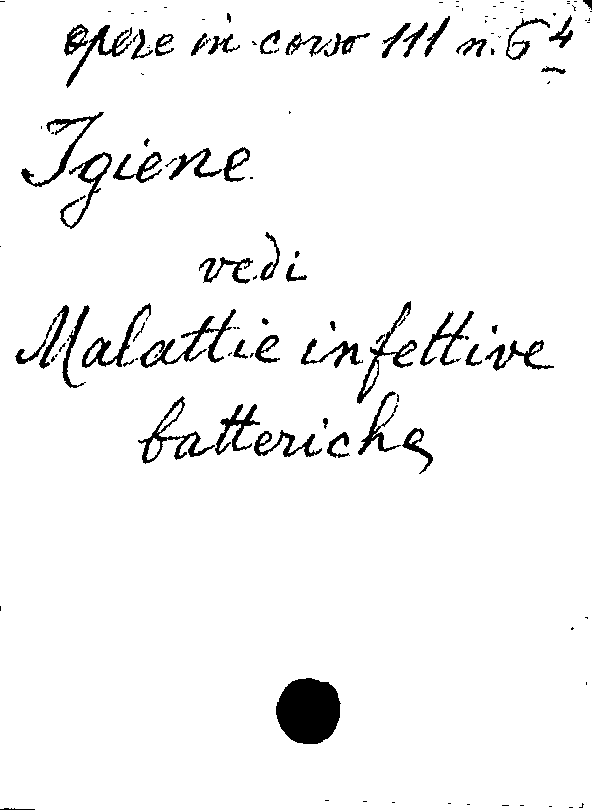 opere in corso III n. 6 4
Igiene
vedi
Malattie infettive
batteriche